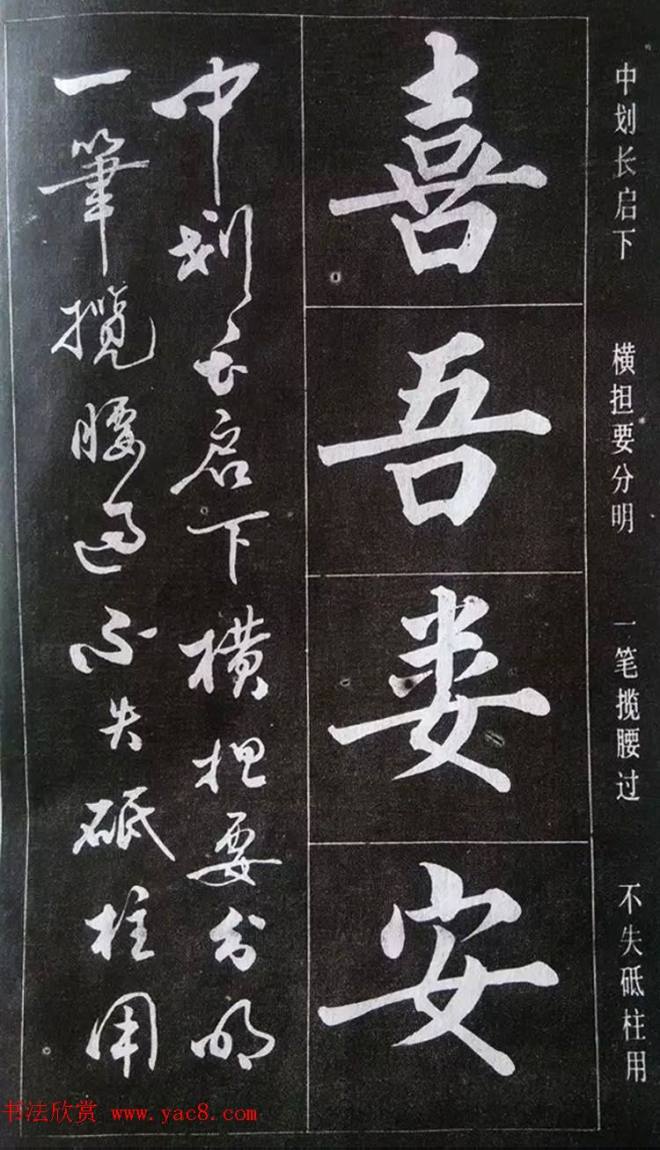 中划长启下 横担要分明 一笔揽腰过 不失砥柱用
喜吾娄安
中划长启下横担要分明
一筆攬腰過不失砥柱用
书法欣赏 www.yac8.com